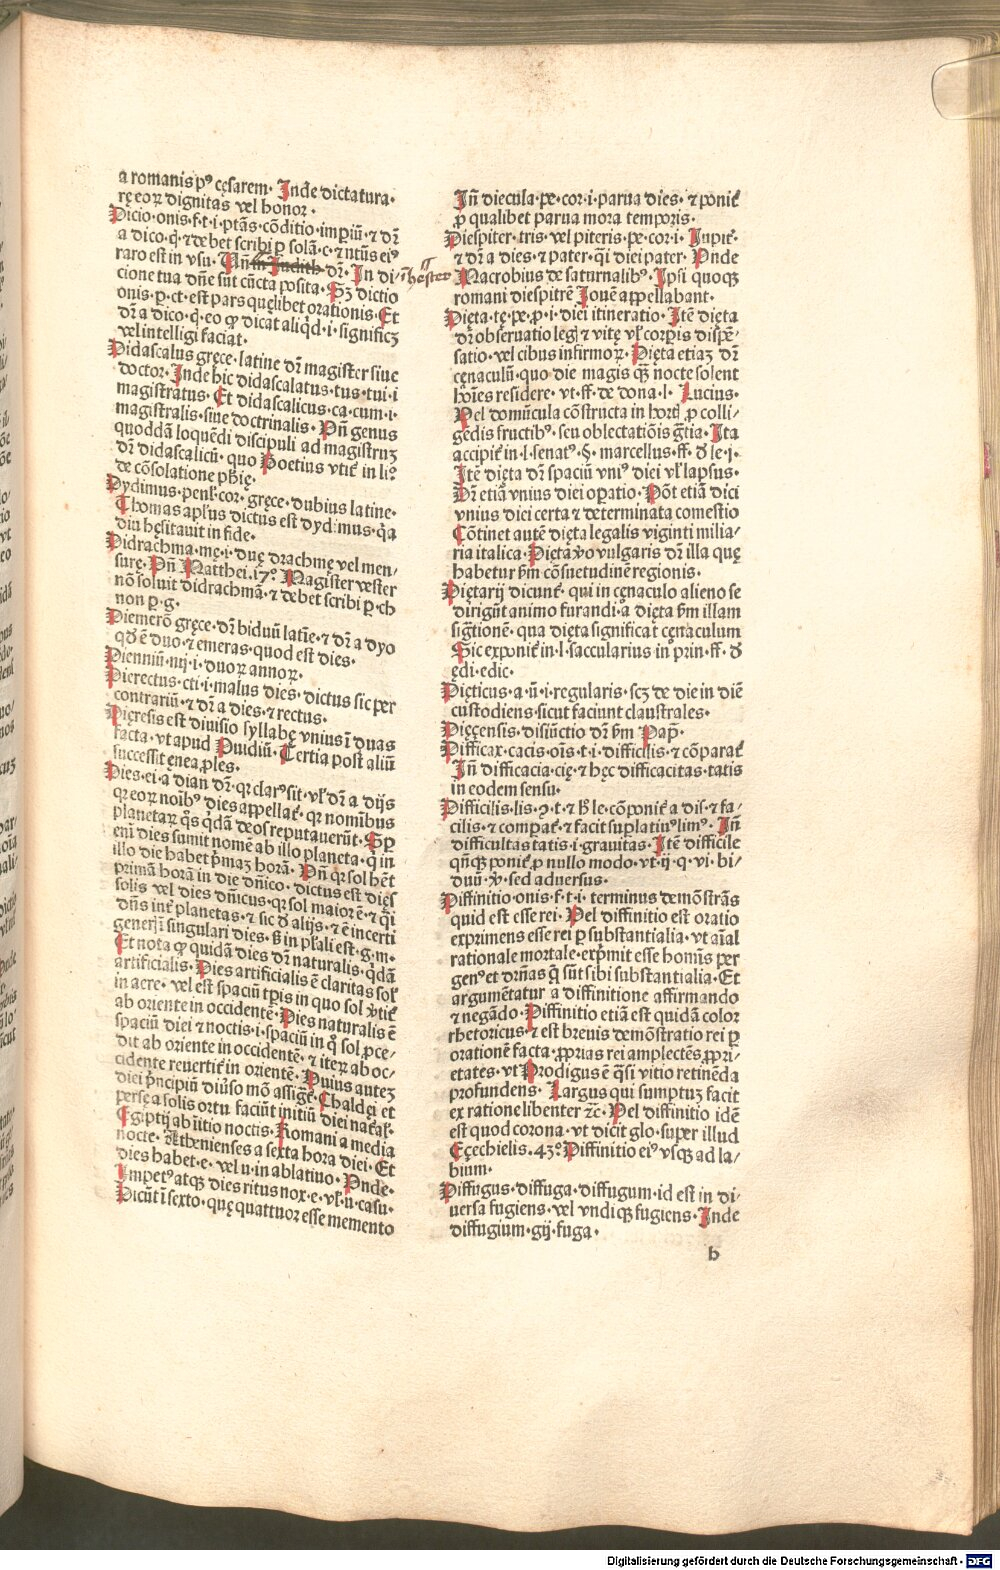 a romanis pꝰ cęsarem· Inde dictatura·
rę eoꝝ dignitas vel honor·
Dicio·onis·f·t·i·ptãs·cõditio·imperiũ·⁊ dr̃
a dico·q̃·⁊ debet scribi ꝑ solã·c·⁊ ntũs eiꝰ
raro est in vsu· Vñ in Judith dr̃· In di-
in hester
cione tua dñe sũt cũcta posita· Sꝫ dictio
onis·ꝑ·ct·est pars quęlibet orationis· Et
dr̃ a dico·q̃·eo ꝙ dicat aliqd·i·significꝫ
vel intelligi faciat·
Didascalus gręce·latine dr̃ magister siue
doctor· Inde hic didascalatus·tus·tui·i
magistratus· Et didascalicus·ca·cum·i·
magistralis·siue doctrinalis· Vñ genus
quoddã loquẽdi discipuli ad magistruꝫ
dr̃ didascalicũ· quo Boetius vtit̃ in li°
de cõsolatione phię·
Dydimus·penl·cor·gręce·dubius latine·
Thomas apl̃us dictus est dydimus·q̃a
diu hęsitauit in fide·
Didrachma·mę·i·duę drachmę vel men/
surę· Vñ Matthei·17° Magister vester
nõ soluit didrachmã·⁊ debet scribi ꝑ·ch
non ꝑ·g·
Diemerõ gręce·dr̃ biduũ latĩe·⁊ dr̃ a dyo
qd̃ ẽ duo·⁊ emeras·quod est dies·
Dienniũ·nij·i·duoꝝ annoꝝ·
Dierectus·cti·i·malus dies·dictus sic per
contrariũ·⁊ dr̃ a dies·⁊ rectus·
Dięresis est diuisio syllabę vnius ĩ duas
facta·vt apud Ouidiũ· Tertia post aliũ
successit ęnea ꝓles·
Dies·ei·a dian dr̃·qꝛ clarꝰ sit·vl̃ dr̃ a dijs
qꝛ eoꝝ noĩbꝰ dies appellat̃·qꝛ nominibus
planetaꝝ q̃s qdã deos reputauerũt· Sꝑ
enĩ dies sumit nomẽ ab illo planeta·q̃ in
illo die habet p̃maꝫ horã· Vñ qꝛ sol hẽt
primã horã in die dñico·dictus est dięs
solis vel dies dñicus·qꝛ sol maior ẽ·⁊ q̃i
dñs int̃ planetas·⁊ sic ð alijs·⁊ ẽ incerti
generĩ ĩ singulari dies·ß in pl̃ali est·g·m·
Et nota ꝙ quidã dies dr̃ naturalis·q̃dã
artificialis· Dies artificialis ẽ claritas sol̃
in aere·vel est spaciũ tp̃is in quo sol v̾tit̃
ab oriente in occidentẽ· Dies naturalis ẽ
spaciũ diei ⁊ noctis·i·spaciũ in q̊ sol ꝓce/
dit ab oriente in occidentẽ·⁊ iteꝝ ab oc/
cidente reuertit̃ in orientẽ· Huius auteꝫ
diei p̃ncipiũ diũso mõ assigt̃· Chaldęi et
persę a solis ortu faciũt initiũ diei nat̃al̃·
Egiptij ab ĩitio noctis· Romani a media
nocte· Athenienses a sexta hora diei· Et
dies habet·e·vel u·in ablatiuo· Vnde·
Impetꝰ atqꝫ dies ritus nox·e·vl̃·u·casu·
Dicũt ĩ sexto·quę quattuor esse memento
Iñ diecula·pe·cor·i·parua dies·⁊ ponit̃
ꝓ qualibet parua mora temporis·
Diespiter·tris·vel piteris·pe·cor·i· Iupit̃·
⁊ dr̃ a dies·⁊ pater·q̃i diei pater· Vnde
Macrobius de saturnalibꝰ· Ipsi quoqꝫ
romani diespitrẽ Iouẽ appellabant·
Dięta·tę·pe·ꝓ·i·diei itineratio· Itẽ dięta
dr̃ obseruatio legĩ ⁊ vitę vl̃ corꝑis dispẽ/
satio·vel cibus infirmoꝝ· Dięta etiaꝫ dr̃
cęnaculũ·quo die magis q̃ꝫ nocte solent
hoĩes residere·vt·ff·de dona·l· Lucius·
Vel domũcula cõstructa in hortĩ ꝓ colli/
gẽdis fructibꝰ·seu oblectatiõis gr̃tia· Ita
accipit̃ in·l·senatꝰ·§·marcellus·ff·ð le·i·
Itẽ dięta dr̃ spaciũ vniꝰ diei vl̃ lapsus·
Dr̃ etiã vnius diei oꝑatio· Põt etiã dici
vnius diei certa ⁊ determinata comestio
Cõtinet autẽ dięta legalis viginti milia/
ria italica· Dięta v̾o vulgaris dr̃ illa quę
habetur ẜm cõsuetudinẽ regionis·
Diętarij dicunt̃·qui in cęnaculo alieno se
dirigũt animo furandi·a dięta ẜm illam
sigt̃ionẽ·qua dięta significat cęnaculum
Sic exponit̃ in·l·saccularius in prin·ff·ð
ędi·edic·
Dięticus·a·ũ·i·regularis·scꝫ de die in diẽ
custodiens·sicut faciunt claustrales·
Dięcęnsis·disiũctio dr̃ ẜm Pap̃·
Difficax·cacis·oĩs·t·i·difficilis·⁊ cõparat̃
Iñ difficacia·cię·⁊ hęc difficacitas·tatis
in eodem sensu·
Difficilis·lis·ꝯ·t·⁊ h̃ le·cõponit̃ a dis·⁊ fa/
cilis·⁊ comparat̃·⁊ facit suꝑlatiuꝰ limꝰ· Iñ
difficultas tatis·i·grauitas· Itẽ difficile
qñqꝫ ponit̃ ꝓ nullo modo·vt·ij·q·vi·bi/
duũ·ꝟ·sed aduersus·
Diffinitio·onis·f·t·i·terminus demõstrãs
quid est esse rei· Vel diffinitio est oratio
exprimens esse rei ꝑ substantialia·vt aĩal
rationale mortale·exp̃mit esse homĩs per
genꝰ et dr̃ñas q̃ sũt sibi substantialia· Et
argumẽtatur a diffinitione affirmando
⁊ negãdo· Diffinitio etiã est quidã color
rhetoricus·⁊ est breuis demõstratio rei ꝑ
orationẽ facta·ꝓprias rei amplectẽs ꝓpri/
etates·vt Prodigus ẽ q̃si vitio retinẽda
profundens· Largus qui sumptuꝫ facit
ex ratione libenter ⁊c̃· Vel diffinitio idẽ
est quod corona·vt dicit glo·super illud
Eçechielis·43° Diffinitio eiꝰ vsqꝫ ad la/
bium·
Diffugus·diffuga·diffugum·id est in di/
uersa fugiens·vel vndiqꝫ fugiens· Inde
diffugium·gij·fuga·
b
Digitalisierung gefördert durch die Deutsche Forschungsgemeinschaft · DFG